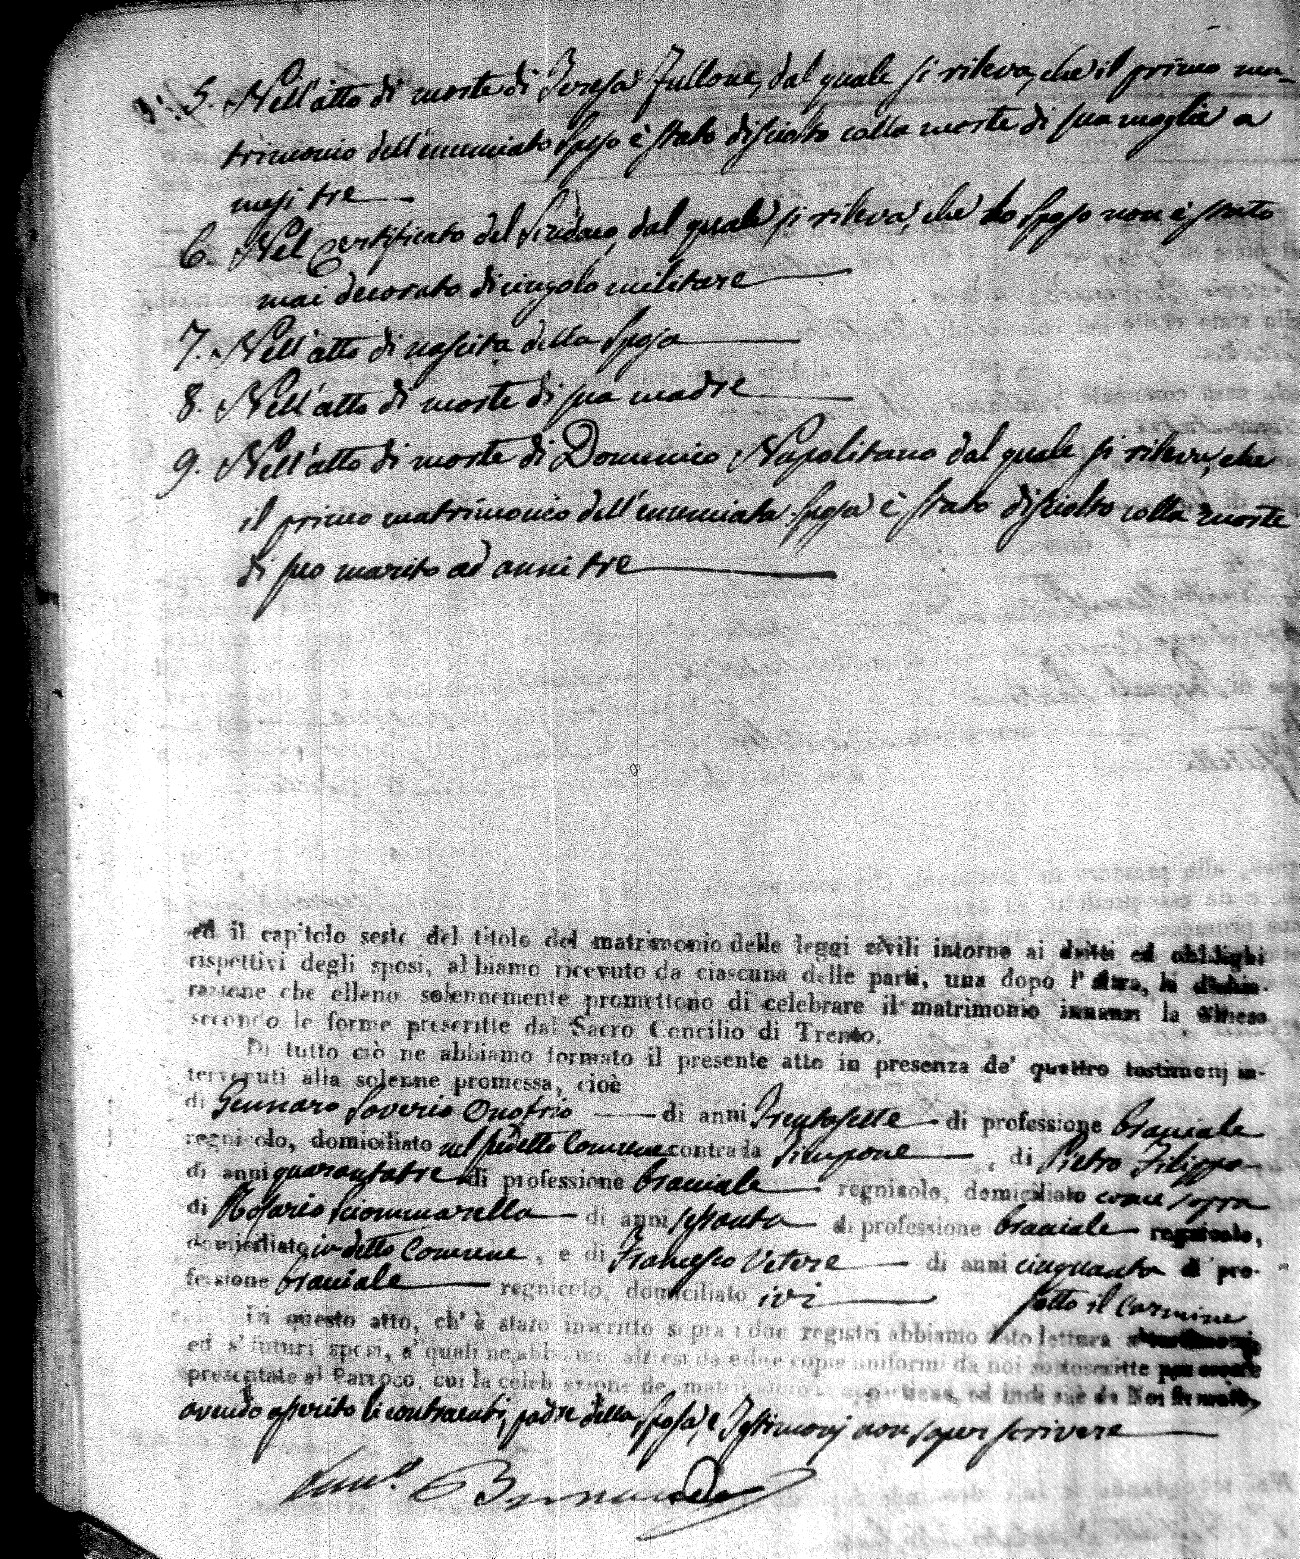 5. Nell'atto di morte di Teresa Fullone, dal quale si rileva, che il primo ma-
trimonio dell'enunciato sposo è stato disciolto colla morte di sua moglie a
mesi tre
6. Nel Certificato del Sindaco, dal quale si rileva, che lo sposo non è stato
mai decorato di cingolo militare
7. Nell'atto di nascita della sposa
8. Nell'atto di morte di sua madre
9. Nell'atto di morte di Domenico Napolitano dal quale si rileva, che
il primo matrimonio dell'enunciata sposa è stato disciolto colla morte
di suo marito ad anni tre
ed il capitolo sesto del titolo del matrimonio delle leggi civili intorno ai dritti ed obblighi
rispettivi degli sposi, abbiamo ricevuto da ciascuna delle parti, una dopo l'altra, la dichia-
razione che elleno solennemente promettono di celebrare il matrimonio innanzi la Chiesa
secondo le forme prescritte dal Sacro Concilio di Trento.
Di tutto ciò ne abbiamo formato il presente atto in presenza de' quattro testimonj in-
tervenuti alla solenne promessa, cioè
di Gennaro Saverio Onofrio di anni Trentasette di professione braciale
regnicolo, domiciliato nel predetto Comune contrada, di Pietro Filippo
di anni quarantatre di professione braciale regnicolo, domiciliato come sopra
di Rosario Sciommarella di anni sessanta di professione braciale regnicolo,
domiciliato in detto Comune, e di Francesco Vetere di anni cinquanta di pro-
fessione braciale regnicolo, domiciliato ivi sotto il Carmine
In questo atto, ch' è stato inscritto sopra i due registri abbiamo dato lettura a' testimonj
ed a' futuri sposi, a' quali ne abbiamo altresì da e due copie uniformi da noi sottoscritte per essere
presentate al Parroco, cui la celebrazione del matrimonio si appartiene, ed indi si è da Noi firmato,
avendo asserito li contraenti, padre della sposa, e Testimonj non saper scrivere